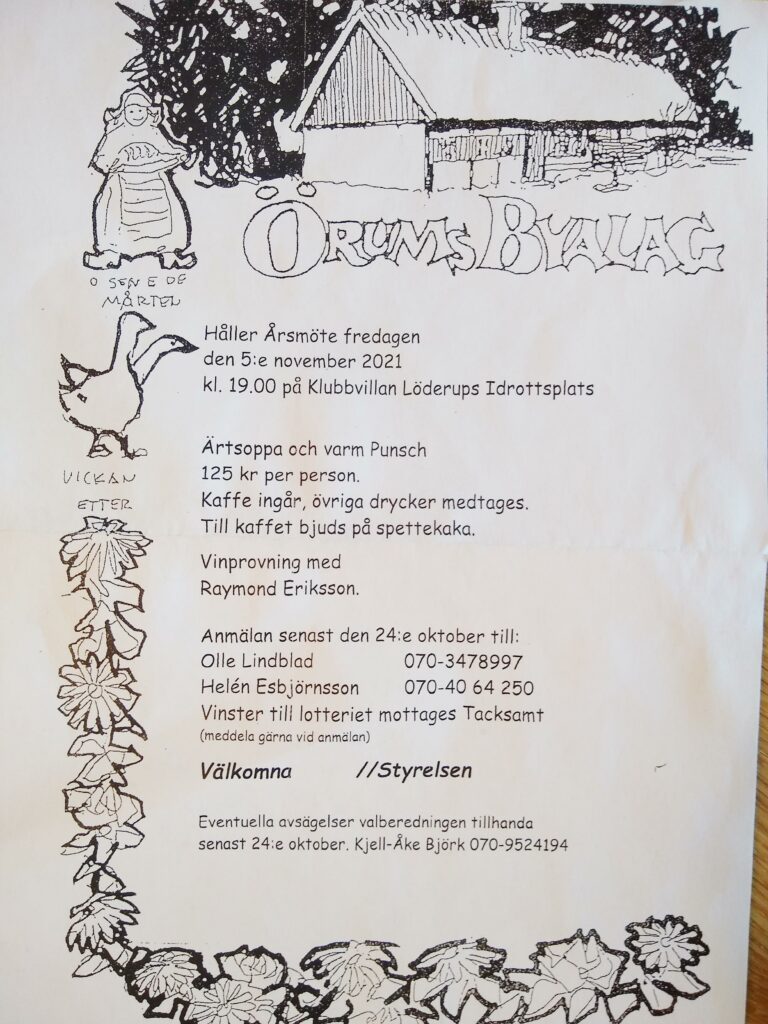 ÖRUMS BYALAG
O SEN E DE
MÅRTEN
Håller Årsmöte fredagen
den 5:e november 2021
kl. 19.00 på Klubbvillan Löderups Idrottsplats
Ärtsoppa och varm Punsch
125 kr per person.
Kaffe ingår, övriga drycker medtages.
Till kaffet bjuds på spettekaka.
VICKAN
ETTER
Vinprovning med
Raymond Eriksson.
Anmälan senast den 24:e oktober till:
Olle Lindblad 070-3478997
Helén Esbjörnsson 070-40 64 250
Vinster till lotteriet mottages Tacksamt
(meddela gärna vid anmälan)
Välkomna //Styrelsen
Eventuella avsägelser valberedningen tillhanda
senast 24:e oktober. Kjell-Åke Björk 070-9524194